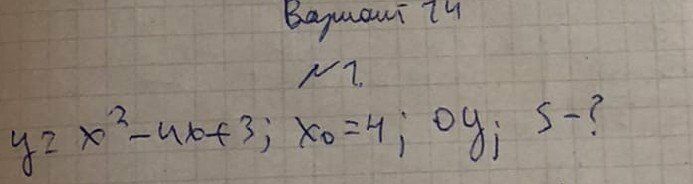 Вариант 14
№1.
y = x² - 4x + 3; x₀ = 4; oy; S - ?